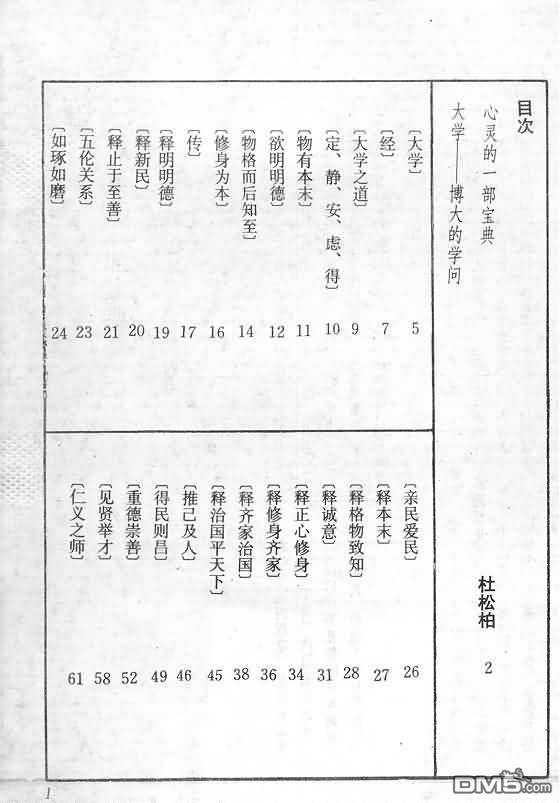 目次
心灵的一部宝典 杜松柏 2
大学——博大的学问
〔大学〕 5
〔经〕 7
〔大学之道〕 9
〔定、静、安、虑、得〕 10
〔物有本末〕 11
〔欲明明德〕 12
〔物格而后知至〕 14
〔修身为本〕 16
〔传〕 17
〔释明明德〕 19
〔释新民〕 20
〔释止于至善〕 21
〔五伦关系〕 23
〔如琢如磨〕 24
〔亲民爱民〕 26
〔释本末〕 27
〔释格物致知〕 28
〔释诚意〕 31
〔释正心修身〕 34
〔释修身齐家〕 36
〔释齐家治国〕 38
〔释治国平天下〕 45
〔推己及人〕 46
〔得民则昌〕 49
〔重德崇善〕 52
〔见贤举才〕 58
〔仁义之师〕 61
1
DM5.com